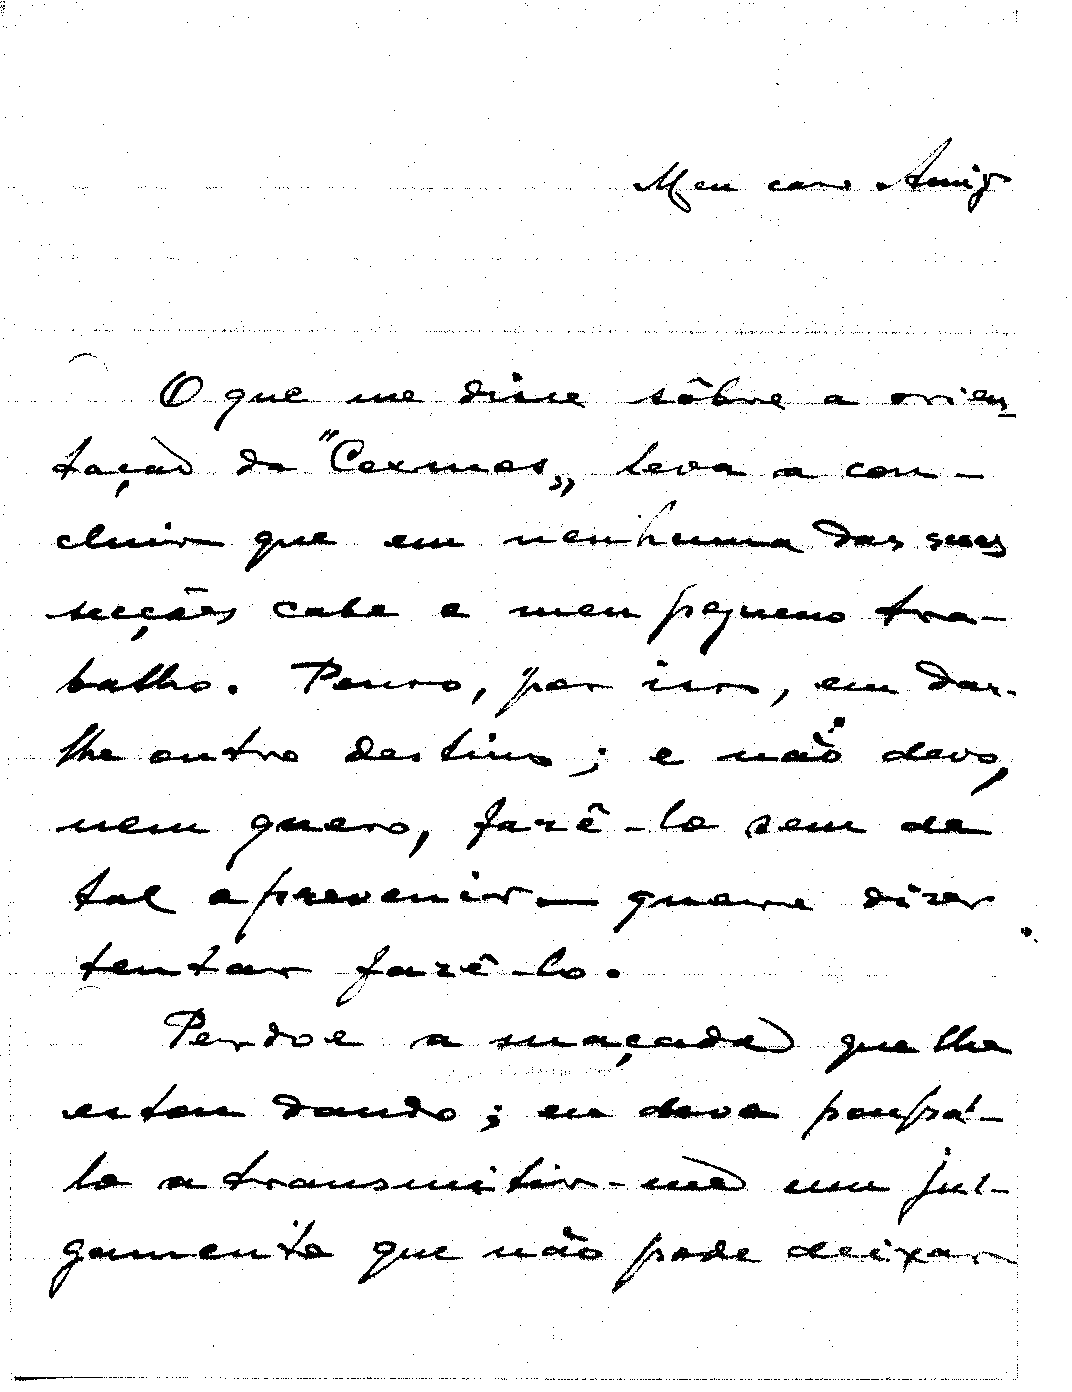 Meu caro Amigo
O que me disse sôbre a orien-
tação da "Cosmos„ leva a con-
cluir que em nenhuma das suas
secções cabe o meu pequeno tra-
balho. Penso, por isso, em dar-
lhe outro destino; e não devo,
nem quero, fazê-lo sem de
tal o prevenir — quere dizer
tentar fazê-lo.
Perdoe a maçada que lhe
estou dando; eu devo poupá-
lo a transmitir-me um jul-
gamento que não pode deixar